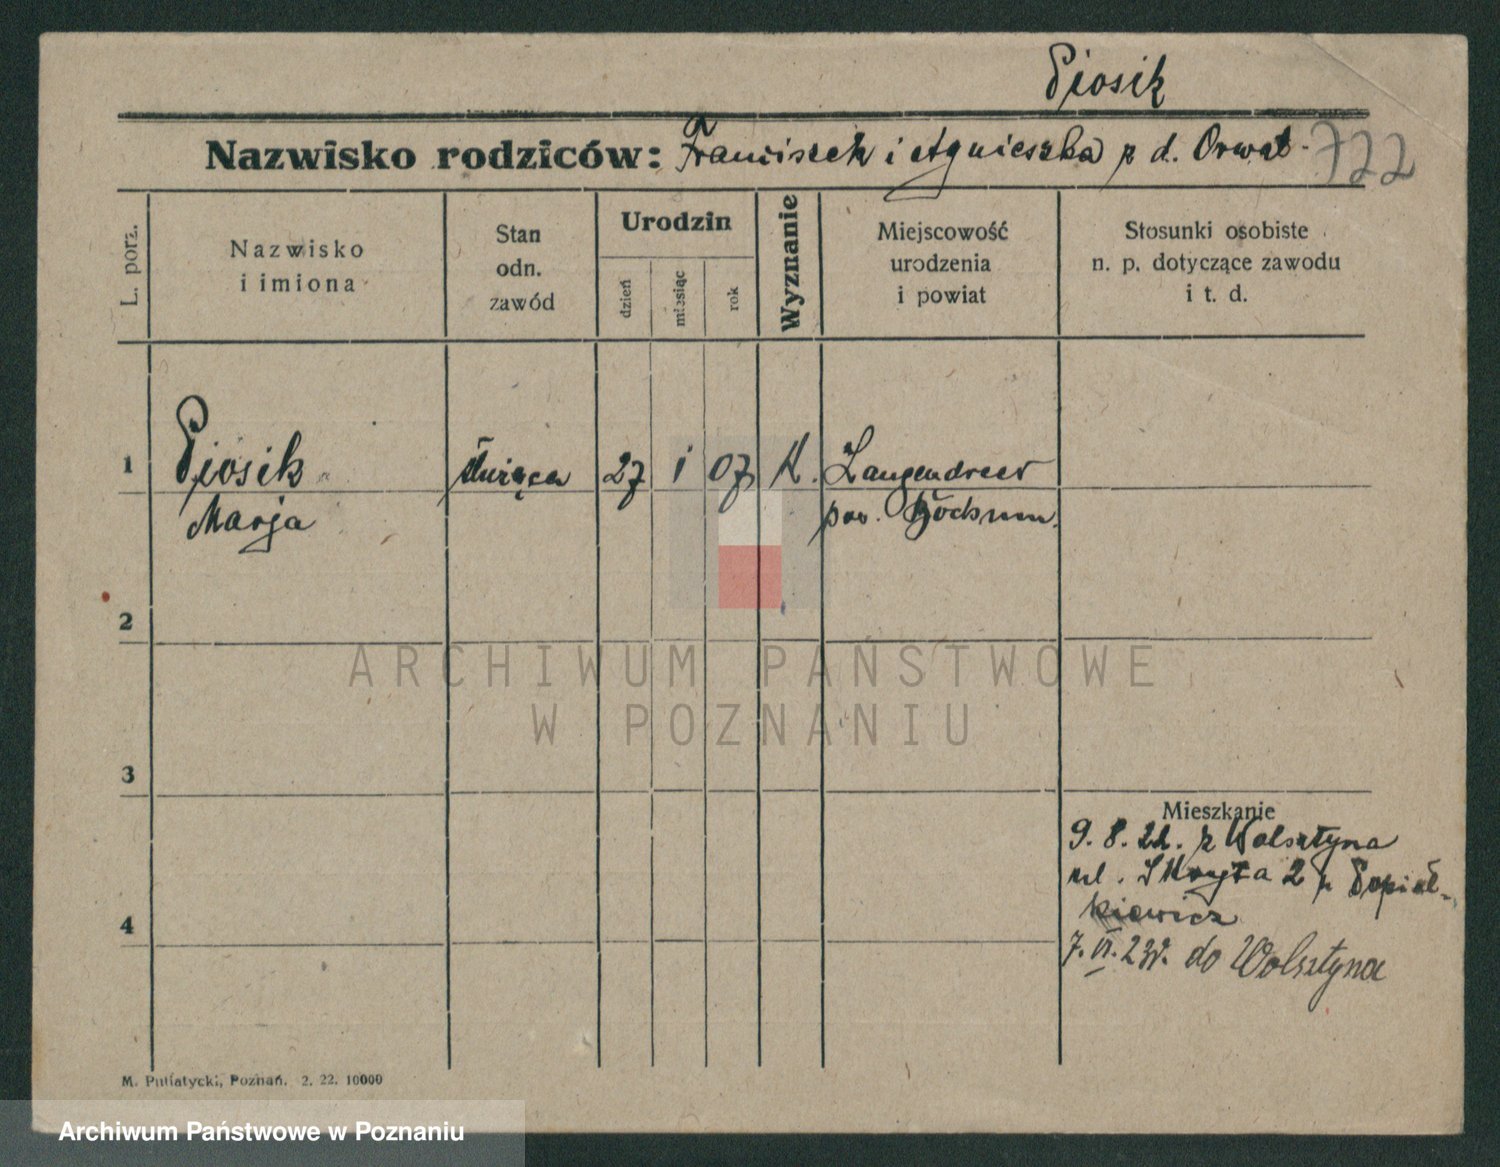 Piosik
Nazwisko rodziców: Franciszek i Agnieszka z d. Orwat. 722
L. porz.
Nazwisko
i imiona
Stan
odn.
zawód
Urodzin
dzień
miesiąc
rok
Wyznanie
Miejscowość
urodzenia
i powiat
Stosunki osobiste
n. p. dotyczące zawodu
i t. d.
1 Piosik służąca 27 i 07 K. Langendreer
Marja pow. Bochum.
2
ARCHIWUM PAŃSTWOWE
W POZNANIU
3
Mieszkanie
9. 8. 22. z Wolsztyna
ul. Skryta 2 p
kiewicz
4
7. VI. 23r. do Wolsztyna
M. Putiatycki, Poznań. 2. 22. 10000
Archiwum Państwowe w Poznaniu